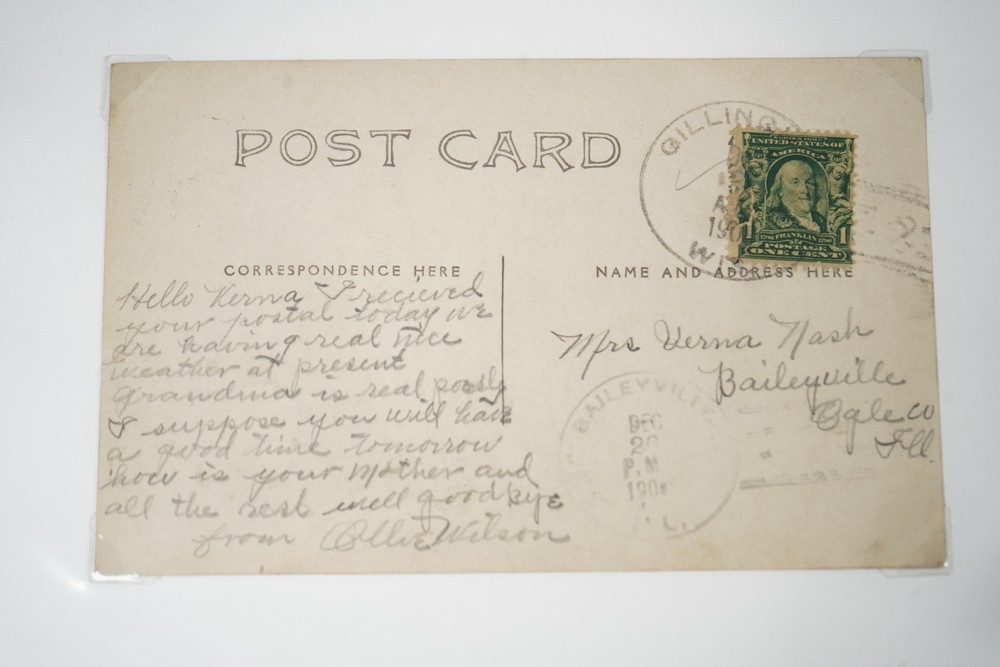 POST CARD
CORRESPONDENCE HERE
Hello Verna I recieved
your postal today we
are having real nice
weather at present
Grandma is real poorly
I suppose you will have
a good time tomorrow
how is your Mother and
all the rest well good bye
from Ollie Wilson
GILLING
190
WIS
UNITED STATES OF
AMERICA
1 FRANKLIN 1
POSTAGE
ONE CENT
NAME AND ADDRESS HERE
Mrs Verna Nash
Baileyville
Ogle co
Ill.
BAILEYVILLE
DEC
26
P.M.
190